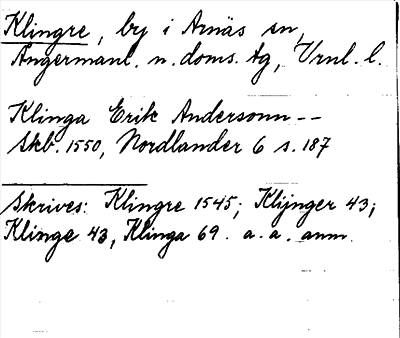 Klingre, by i Arnäs sn,
Ångermanl. n. doms. tg, Vrnl. l.
Klinga Erik Andersonn --
Skb. 1550, Nordlander 6 s. 187
Skrives: Klingre 1545; Klijnger 43;
Klinge 43, Klinga 69. a. a. anm.